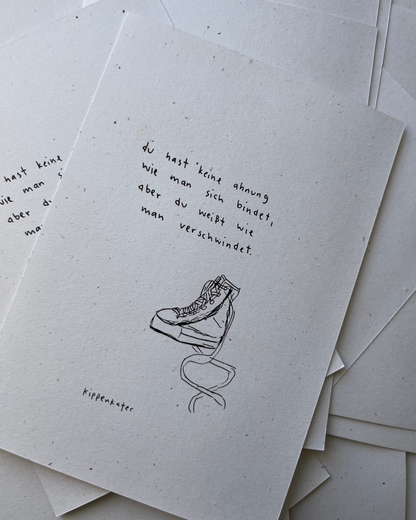 du hast keine ahnung
wie man sich bindet,
aber du weißt wie
man verschwindet.
kippenkater
hast keine
wie man
aber d
ma